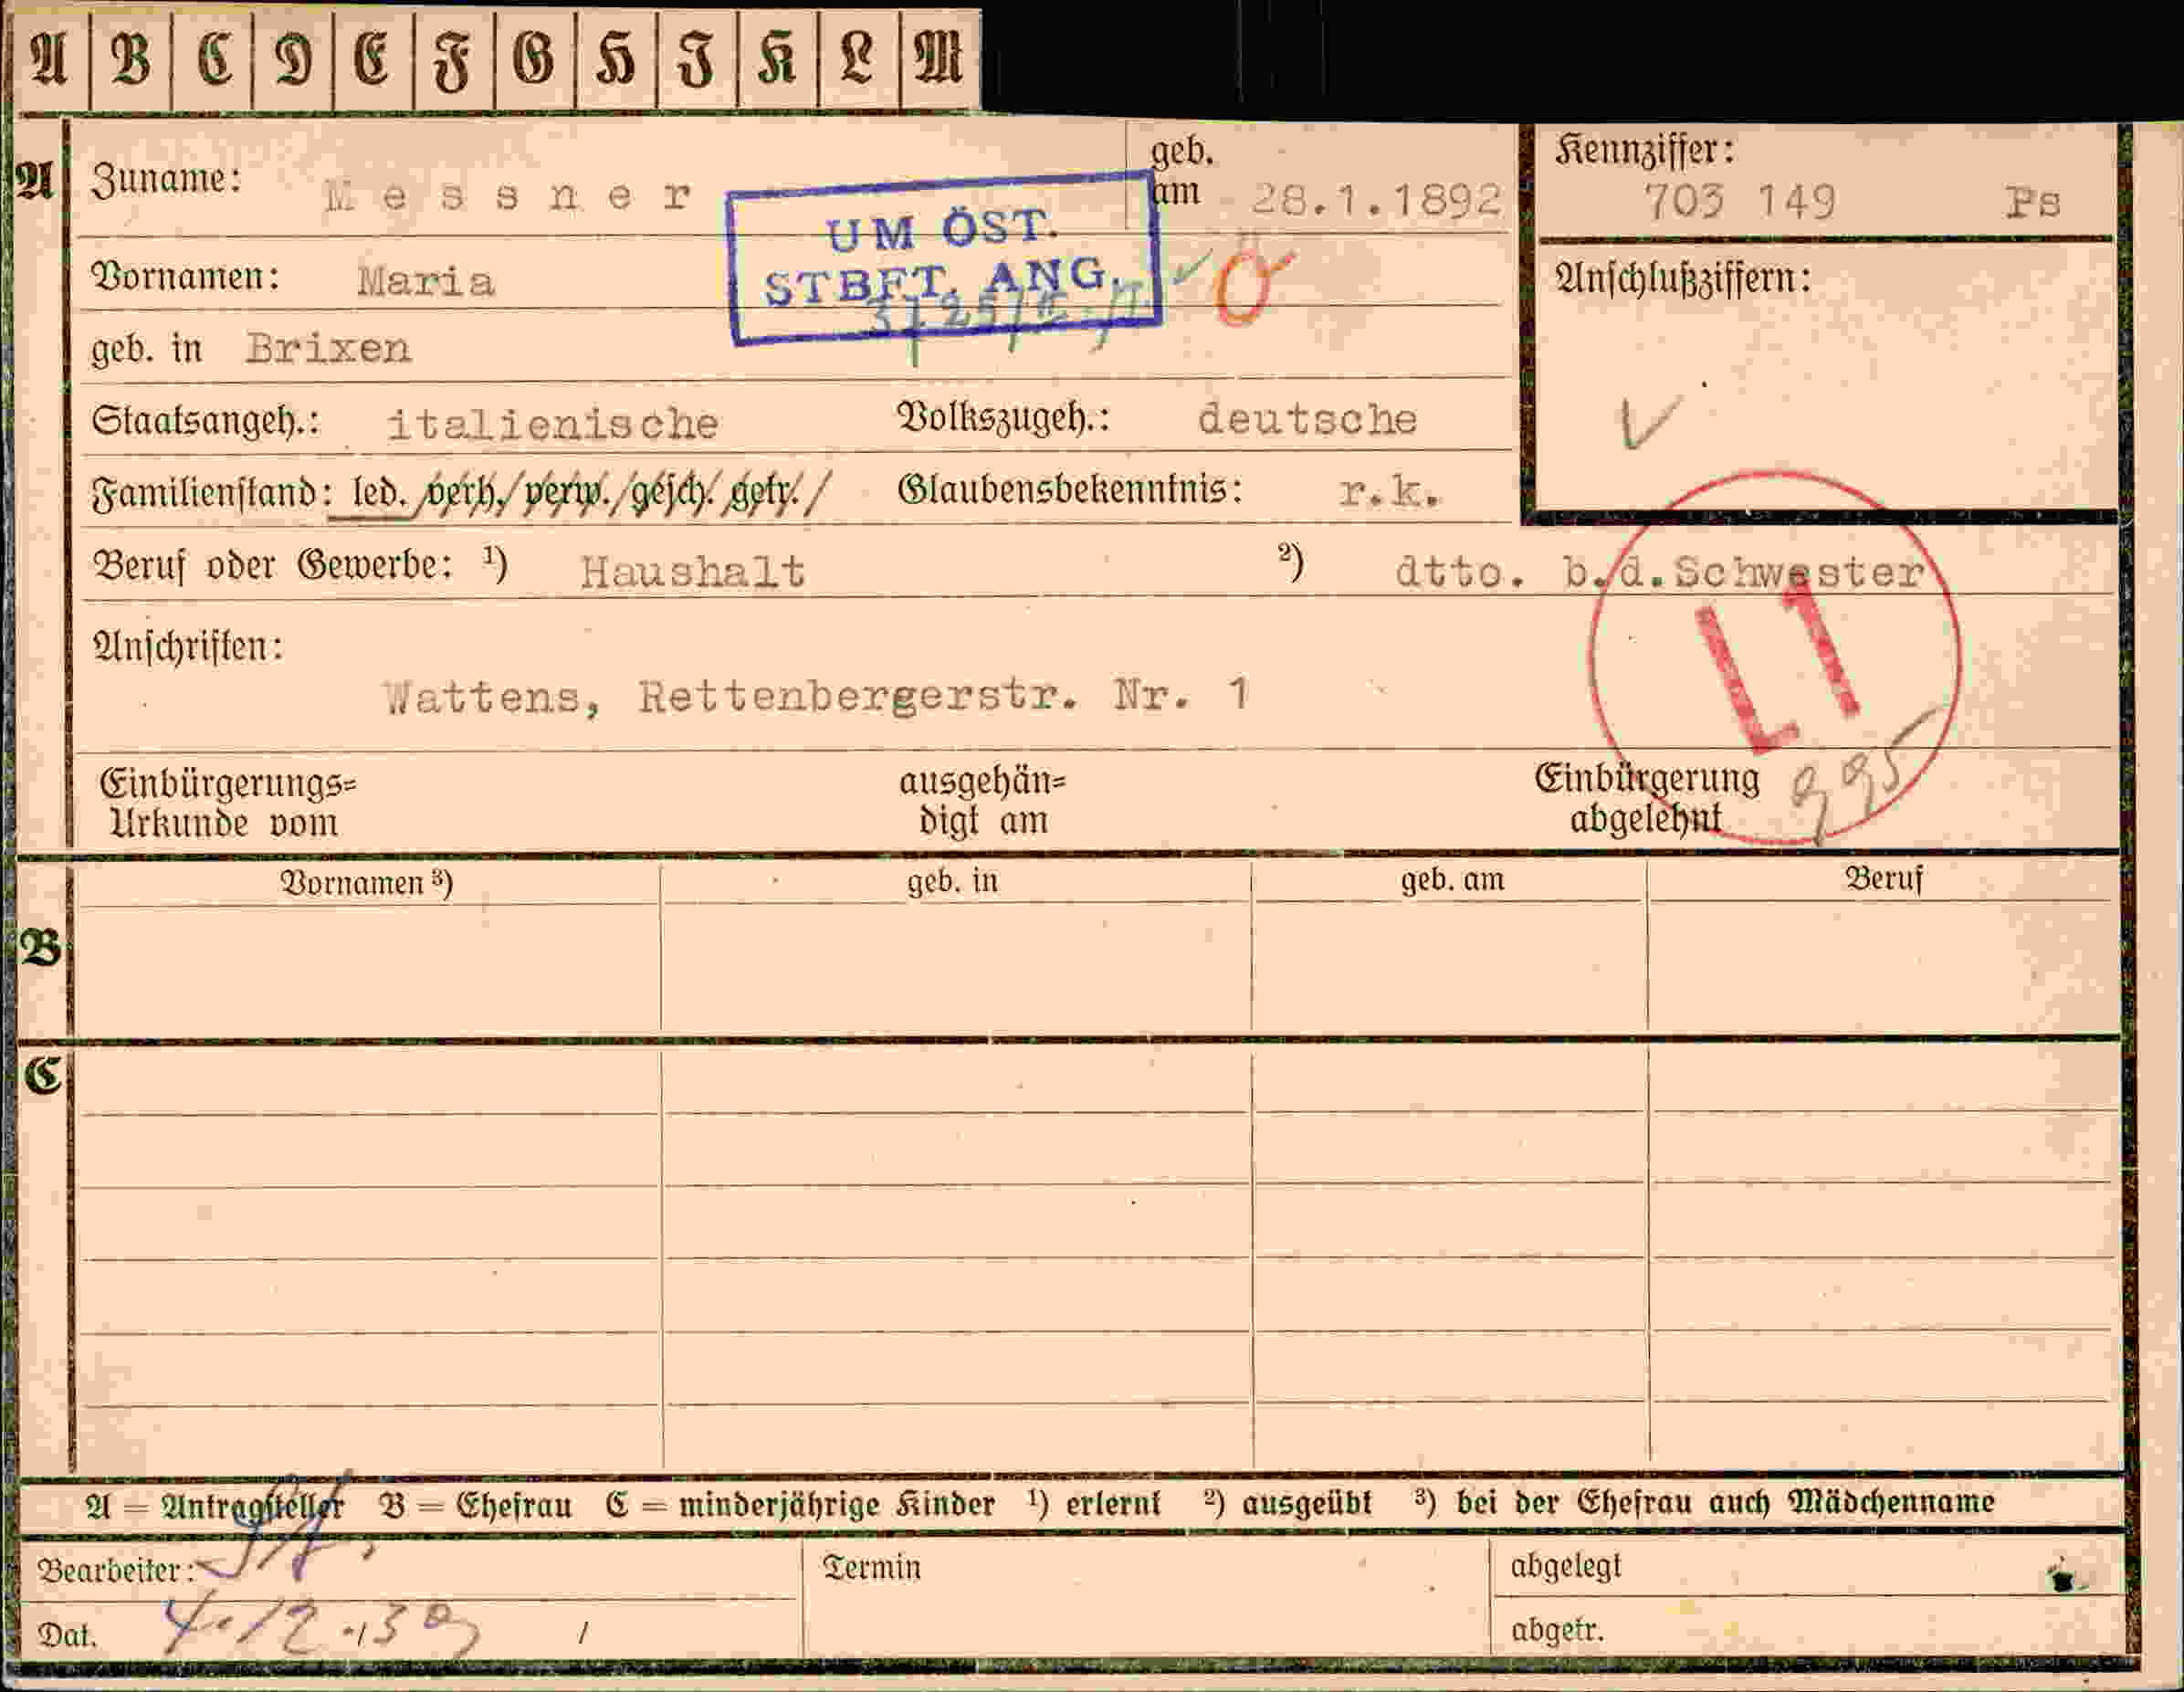 A B C D E F G H I K L M
A Zuname: Messner geb. am 28.1.1892 Kennziffer: 703 149 Ps
UM ÖST.
STBFT. ANG.
Vornamen: Maria Ö Anschlußziffern:
geb. in Brixen
Staatsangeh.: italienische Volkszugeh.: deutsche
Familienstand: led. verh./verw./gesch. getr./ Glaubensbekenntnis: r.k.
Beruf oder Gewerbe: 1) Haushalt 2) dtto. b.d.Schwester
L1
Anschriften:
Wattens, Rettenbergerstr. Nr. 1
Einbürgerungs= ausgehän= Einbürgerung 995
Urkunde vom digt am abgelehnt
Vornamen 3) geb. in geb. am Beruf
B
C
A = Antragsteller B = Ehefrau C = minderjährige Kinder 1) erlernt 2) ausgeübt 3) bei der Ehefrau auch Mädchenname
Bearbeiter: Termin abgelegt
Dat. 4.12.39 abgetr.